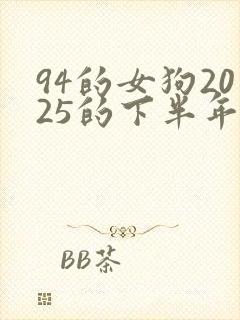 94的女狗20
25的下半年
BB茶